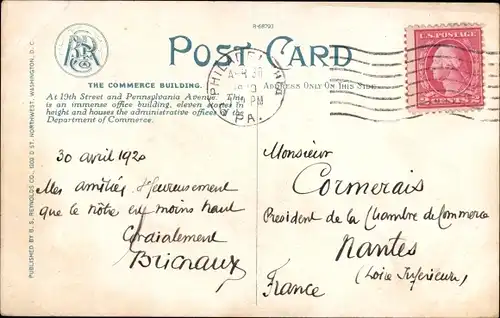 R-68793
POST CARD
THE COMMERCE BUILDING.
At 19th Street and Pennsylvania Avenue. This
is an immense office building, eleven stories in
height and houses the administrative offices of the
Department of Commerce.
ADDRESS ONLY ON THIS SIDE
PUBLISHED BY B. S. REYNOLDS CO., 1002 D ST. NORTHWEST, WASHINGTON, D. C.
PHILADELPHIA
APR 30
PM
PA.
U.S. POSTAGE
2 CENTS 2
30 avril 1920
Mes amitiés, Heureusement
que le nôtre est moins haut
Cordialement
Bricnaux
Monsieur
Cormerais
Président de la Chambre de Commerce
Nantes
(Loire Inférieure)
France